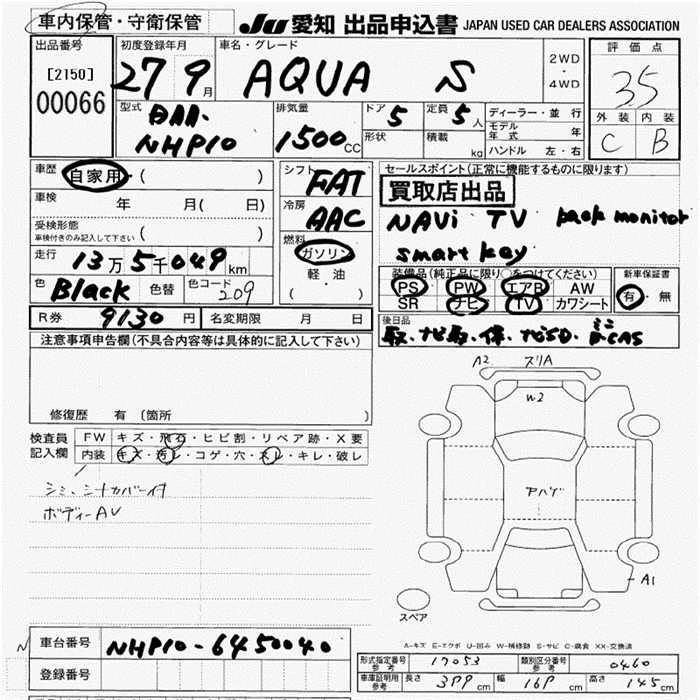 車内保管・守衛保管
JU 愛知 出品申込書 JAPAN USED CAR DEALERS ASSOCIATION
出品番号
[2150]
00066
初度登録年月
27 9月
車名・グレード
AQUA S
2WD・4WD
評価点
35
外装 内装
C B
型式
DAA-
NHP10
排気量
1500CC
ドア 5
定員 5人
形状
積載 kg
ディーラー・並行
モデル年式 年
ハンドル 左・右
車歴 自家用・( )
車検 年 月( 日)
受検形態
車検付きのみ記入して下さい ( )
走行 13万5千049km
色 Black 色替 色コード 209
シフト FAT
冷房 AAC
燃料
ガソリン
軽・油
( )
セールスポイント(正常に機能するものに限ります)
買取店出品
NAVi TV
smart key
装備品(純正品に限り○をつけてください)
PS PW エアB AW
SR ナビ TV カワシート
新車保証書
有・無
R券 9130円 名変期限 月 日
後日品
注意事項申告欄(不具合内容等は具体的に記入して下さい)
修復歴 有(箇所 )
検査員記入欄
FW キズ・飛石・ヒビ割・リペア跡・X要
内装 キズ・汚レ・コゲ・穴・スレ・キレ・破レ
シミ、シートカバー付
ボディーAU
A2 スリA
W2
アハゲ
A1
スペア
A-キズ E-エクボ U-凹み W-補修跡 S-サビ C-腐食 XX-交換済
車台番号 NHP10-6450040
登録番号
形式指定番号 参考 17053 類別区分番号 参考 0460
車庫証明用 参考 長さ 399cm 幅 169cm 高さ 145cm